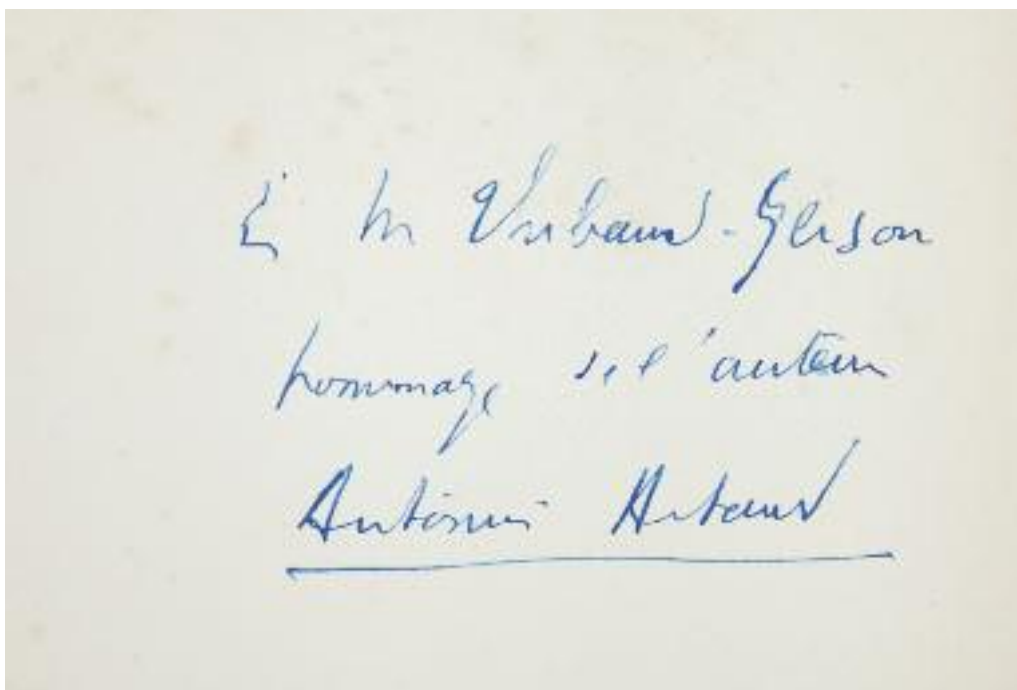 à M Urbaud-Gerson
hommage de l'auteur
Antonin Artaud